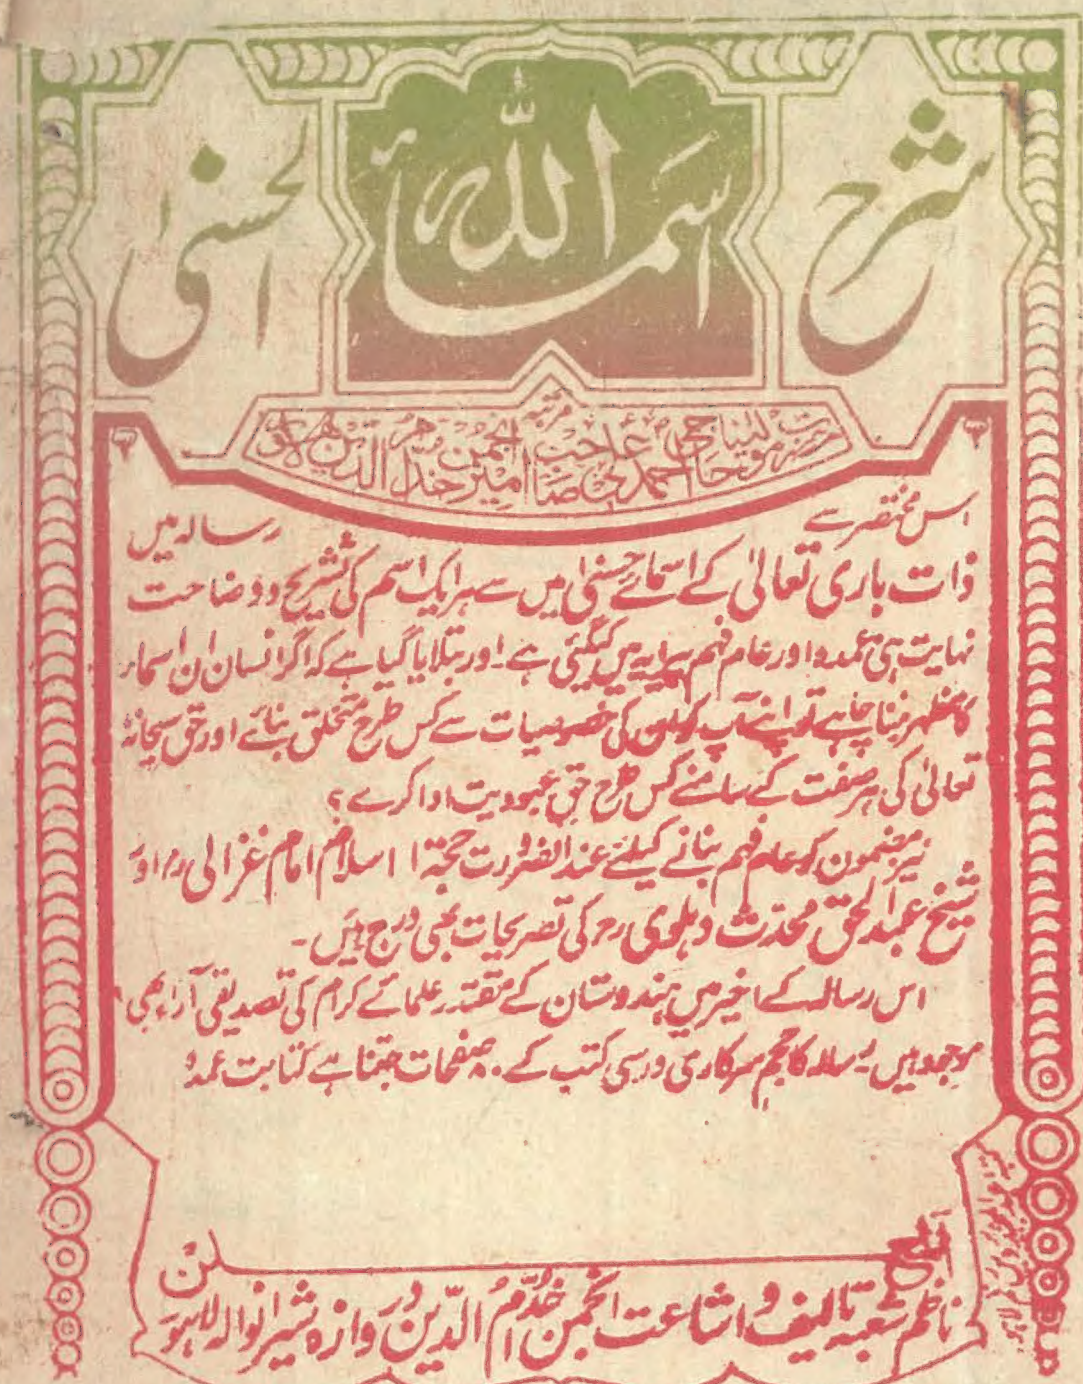 شرح اسماء اللہ الحسنیٰ
مرتبہ
حضرت مولینا حاجی احمد علی صاحب امیر انجمن خدام الدین لاہور
اس مختصر سے رسالہ میں
ذات باری تعالیٰ کے اسمائے حسنیٰ میں سے ہر ایک اسم کی تشریح و وضاحت
نہایت ہی عمدہ اور عام فہم پیرایہ میں کیگئی ہے۔ اور بتلایا گیا ہے کہ اگر انسان ان اسماء
کا مظہر بننا چاہے تو اپنے آپ کو ان کی خصوصیات سے کس طرح متخلق بنائے اور حق سبحانہٗ
تعالیٰ کی ہر صفت کے سامنے کس طرح حق عبودیت ادا کرے؟
نیز مضمون کو عام فہم بنانے کیلئے عند الضرورت حجۃ الاسلام امام غزالی رح اور
شیخ عبد الحق محدث دہلوی رح کی تصریحات بھی درج ہیں۔
اس رسالہ کے اخیر میں ہندوستان کے مقتدر علمائے کرام کی تصدیقی آراء بھی
موجود ہیں۔ رسالہ کا حجم سرکاری درسی کتب کے ۸۰ صفحات جتنا ہے کتابت عمدہ
ناظم شعبہ تالیف و اشاعت انجمن خدام الدین دروازہ شیرانوالہ لاہور